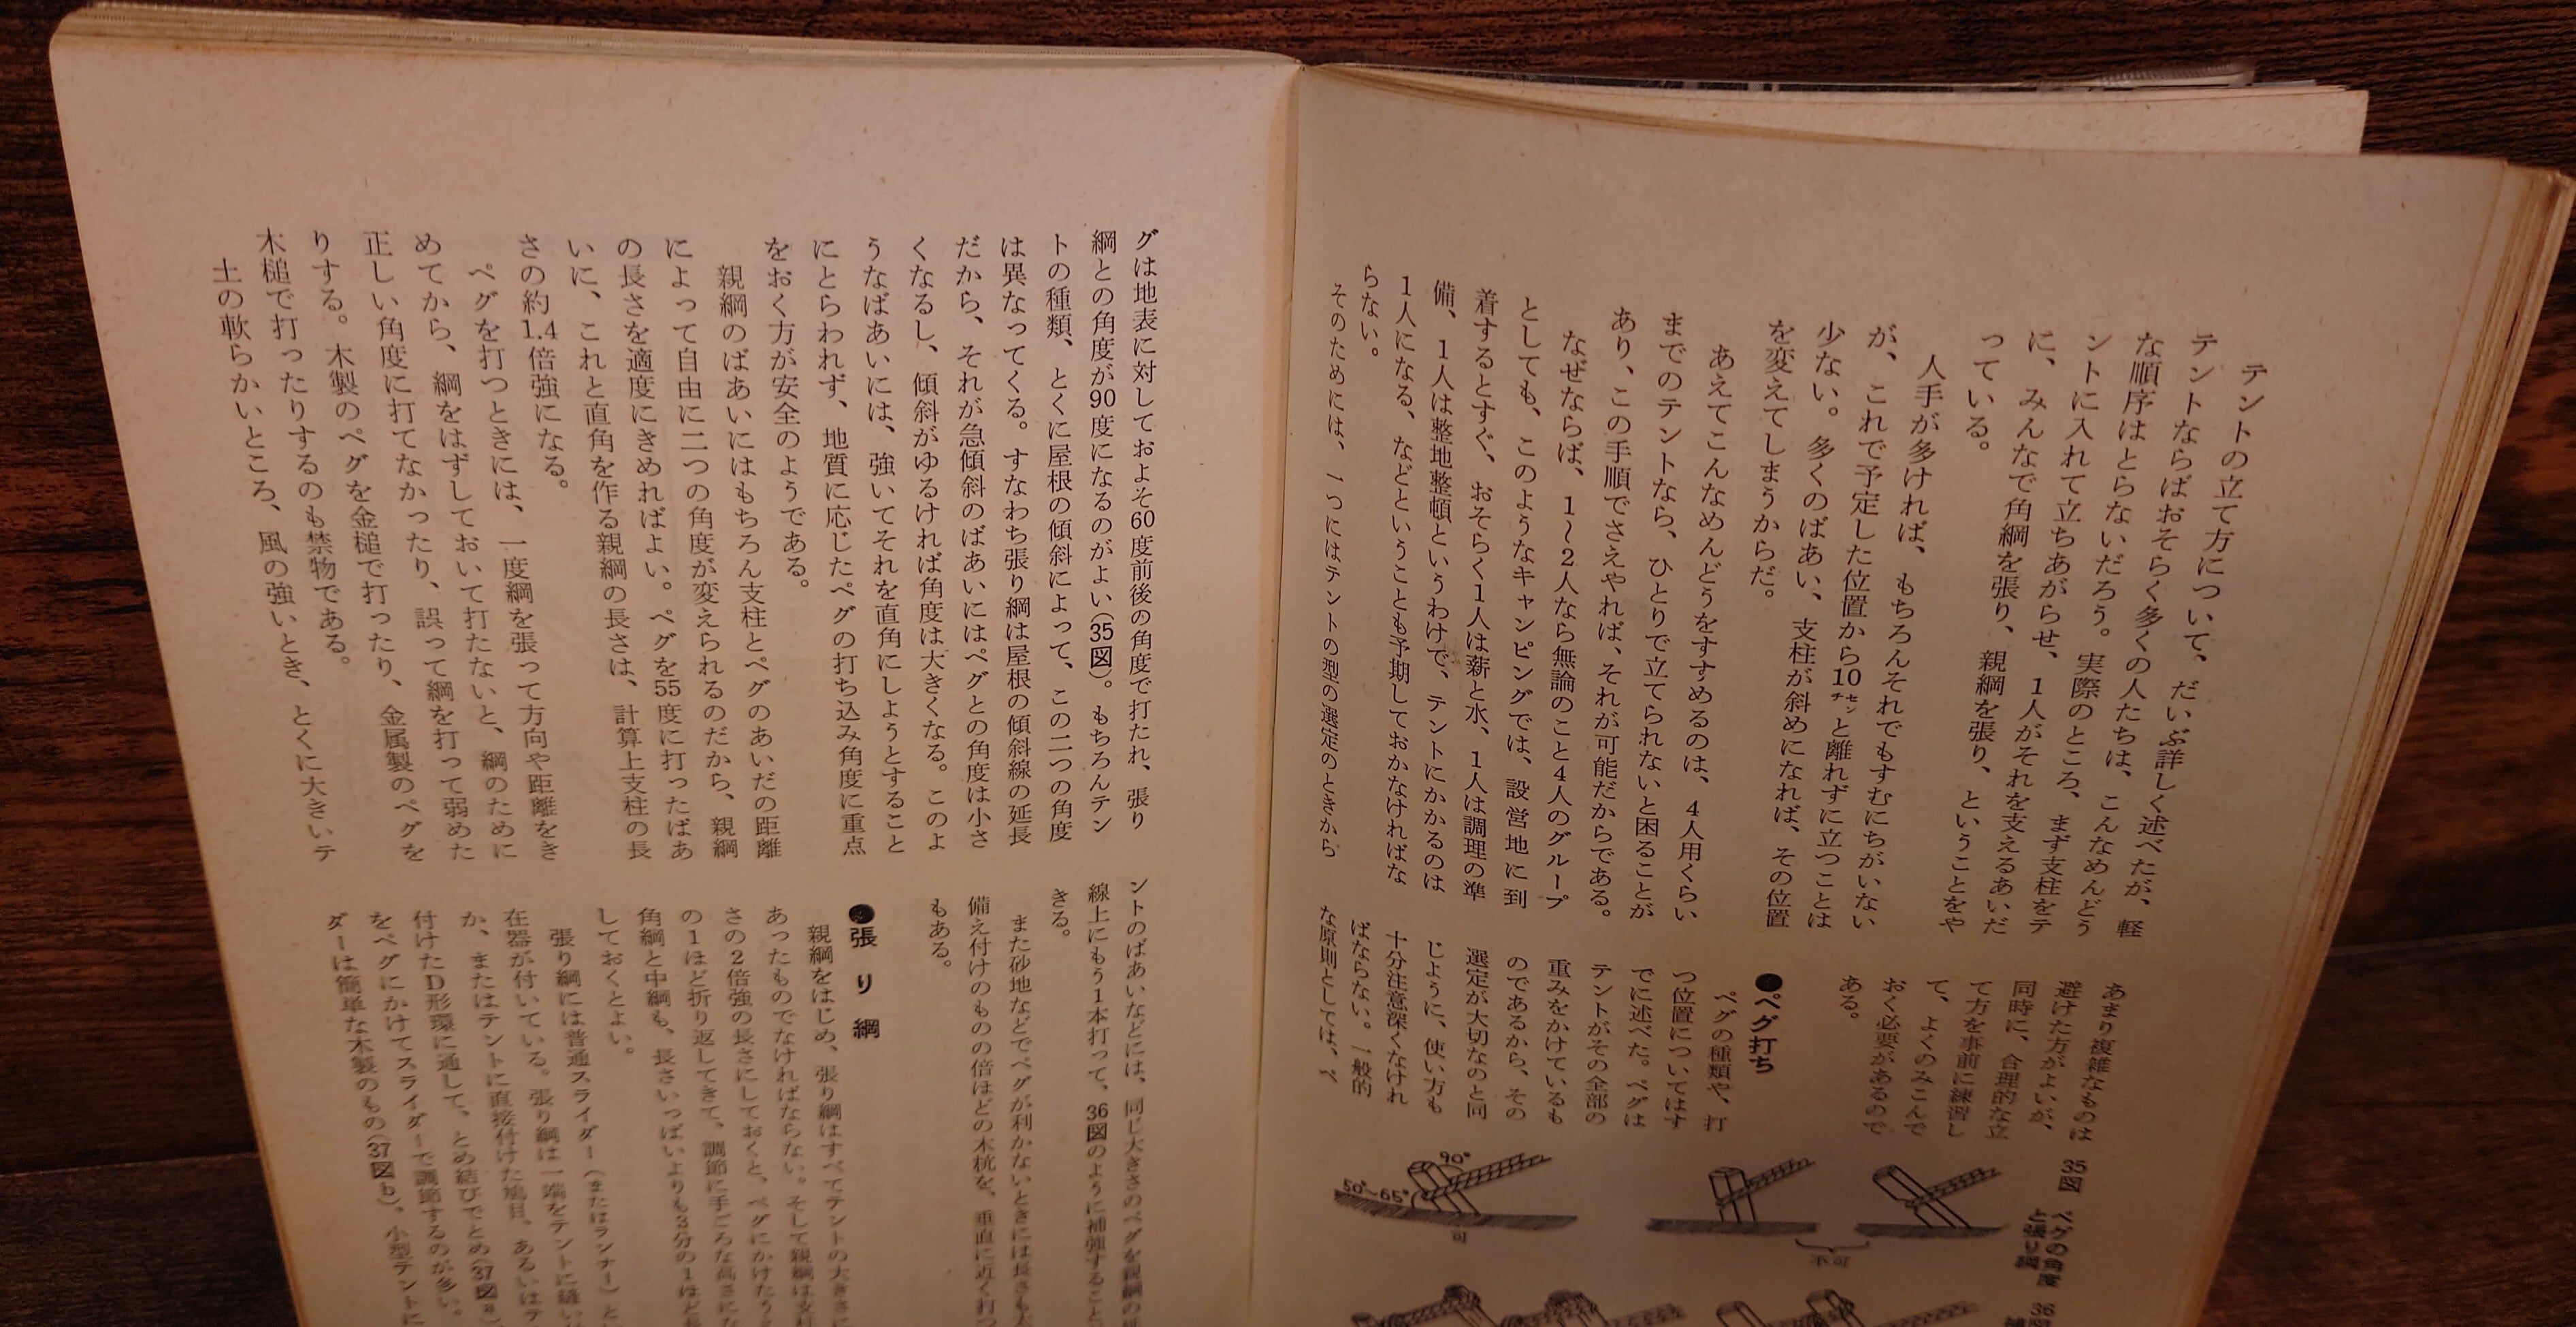 テントの立て方について、だいぶ詳しく述べたが、軽
テントならばおそらく多くの人たちは、こんなめんどう
な順序はとらないだろう。実際のところ、まず支柱をテ
ントに入れて立ちあがらせ、1人がそれを支えるあいだ
に、みんなで角綱を張り、親綱を張り、ということをや
っている。
人手が多ければ、もちろんそれでもすむにちがいない
が、これで予定した位置から10センチと離れずに立つことは
少ない。多くのばあい、支柱が斜めになれば、その位置
を変えてしまうからだ。
あえてこんなめんどうをすすめるのは、4人用くらい
までのテントなら、ひとりで立てられないと困ることが
あり、この手順でさえやれば、それが可能だからである。
なぜならば、1〜2人なら無論のこと4人のグループ
としても、このようなキャンピングでは、設営地に到
着するとすぐ、おそらく1人は薪と水、1人は調理の準
備、1人は整地整頓というわけで、テントにかかるのは
1人になる、などということも予期しておかなければな
らない。
そのためには、一つにはテントの型の選定のときから
あまり複雑なものは
避けた方がよいが、
同時に、合理的な立
て方を事前に練習し
て、よくのみこんで
おく必要があるので
ある。
●ペグ打ち
ペグの種類や、打
つ位置についてはす
でに述べた。ペグは
テントがその全部の
重みをかけているも
のであるから、その
選定が大切なのと同
じように、使い方も
十分注意深くなけれ
ばならない。一般的
な原則としては、ペ
35図 ペグの角度
と張り綱
90°
50°~65°
可
不可
36
グは地表に対しておよそ60度前後の角度で打たれ、張り
綱との角度が90度になるのがよい(35図)。もちろんテン
トの種類、とくに屋根の傾斜によって、この二つの角度
は異なってくる。すなわち張り綱は屋根の傾斜線の延長
だから、それが急傾斜のばあいにはペグとの角度は小さ
くなるし、傾斜がゆるければ角度は大きくなる。このよ
うなばあいには、強いてそれを直角にしようとすること
にとらわれず、地質に応じたペグの打ち込み角度に重点
をおく方が安全のようである。
親綱のばあいにはもちろん支柱とペグのあいだの距離
によって自由に二つの角度が変えられるのだから、親綱
の長さを適度にきめればよい。ペグを55度に打ったばあ
いに、これと直角を作る親綱の長さは、計算上支柱の長
さの約1.4倍強になる。
ペグを打つときには、一度綱を張って方向や距離をき
めてから、綱をはずしておいて打たないと、綱のために
正しい角度に打てなかったり、誤って綱を打って弱めた
りする。木製のペグを金槌で打ったり、金属製のペグを
木槌で打ったりするのも禁物である。
土の軟らかいところ、風の強いとき、とくに大きいテ
ントのばあいなどには、同じ大きさのペグを親綱の延
線上にもう1本打って、36図のように補強すること
きる。
また砂地などでペグが利かないときには長さも大
備え付けのものの倍ほどの木杭を、垂直に近く打つ
もある。
●張り綱
親綱をはじめ、張り綱はすべてテントの大きさに
あったものでなければならない。そして親綱は支柱
さの2倍強の長さにしておくと、ペグにかけたうえ
の1ほど折り返してきて、調節に手ごろな高さにな
角綱と中綱も、長さいっぱいよりも3分の1ほど長
しておくとよい。
張り綱には普通スライダー(またはランナー)と
在器が付いている。張り綱は一端をテントに縫い
か、またはテントに直接付けた鳩目、あるいはテ
付けたD形環に通して、とめ結びでとめ(37図a)
をペグにかけてスライダーで調節するのが多い。
ダーは簡単な木製のもの(37図b)。小型テントに